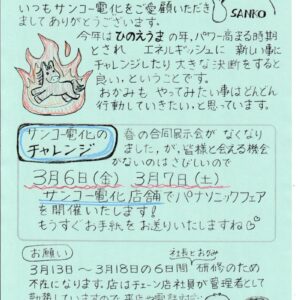 いつもサンコー電化をご愛顧いただき
ましてありがとうございます。
SANKO
今年はひのえうまの年、パワー高まる時期
とされ エネルギッシュに 新しい事に
チャレンジしたり大きな決断をすると
良い、ということです。
おかみも やってみたい事はどんどん
行動していきたい、と思っています。
サンコー電化の
チャレンジ
春の合同展示会が なくなり
ました、が、皆様と会える機会
がないのはさびしいので
3月6日(金) 3月7日(土)
サンコー電化店舗でパナソニックフェア
を開催いたします!
もうすぐお手紙をお送りいたしますね
お願い
社長とおかみ
3月13日～3月18日の6日間 研修のため
不在になります。店はチェーン店社員が管理者として
勤務していますので